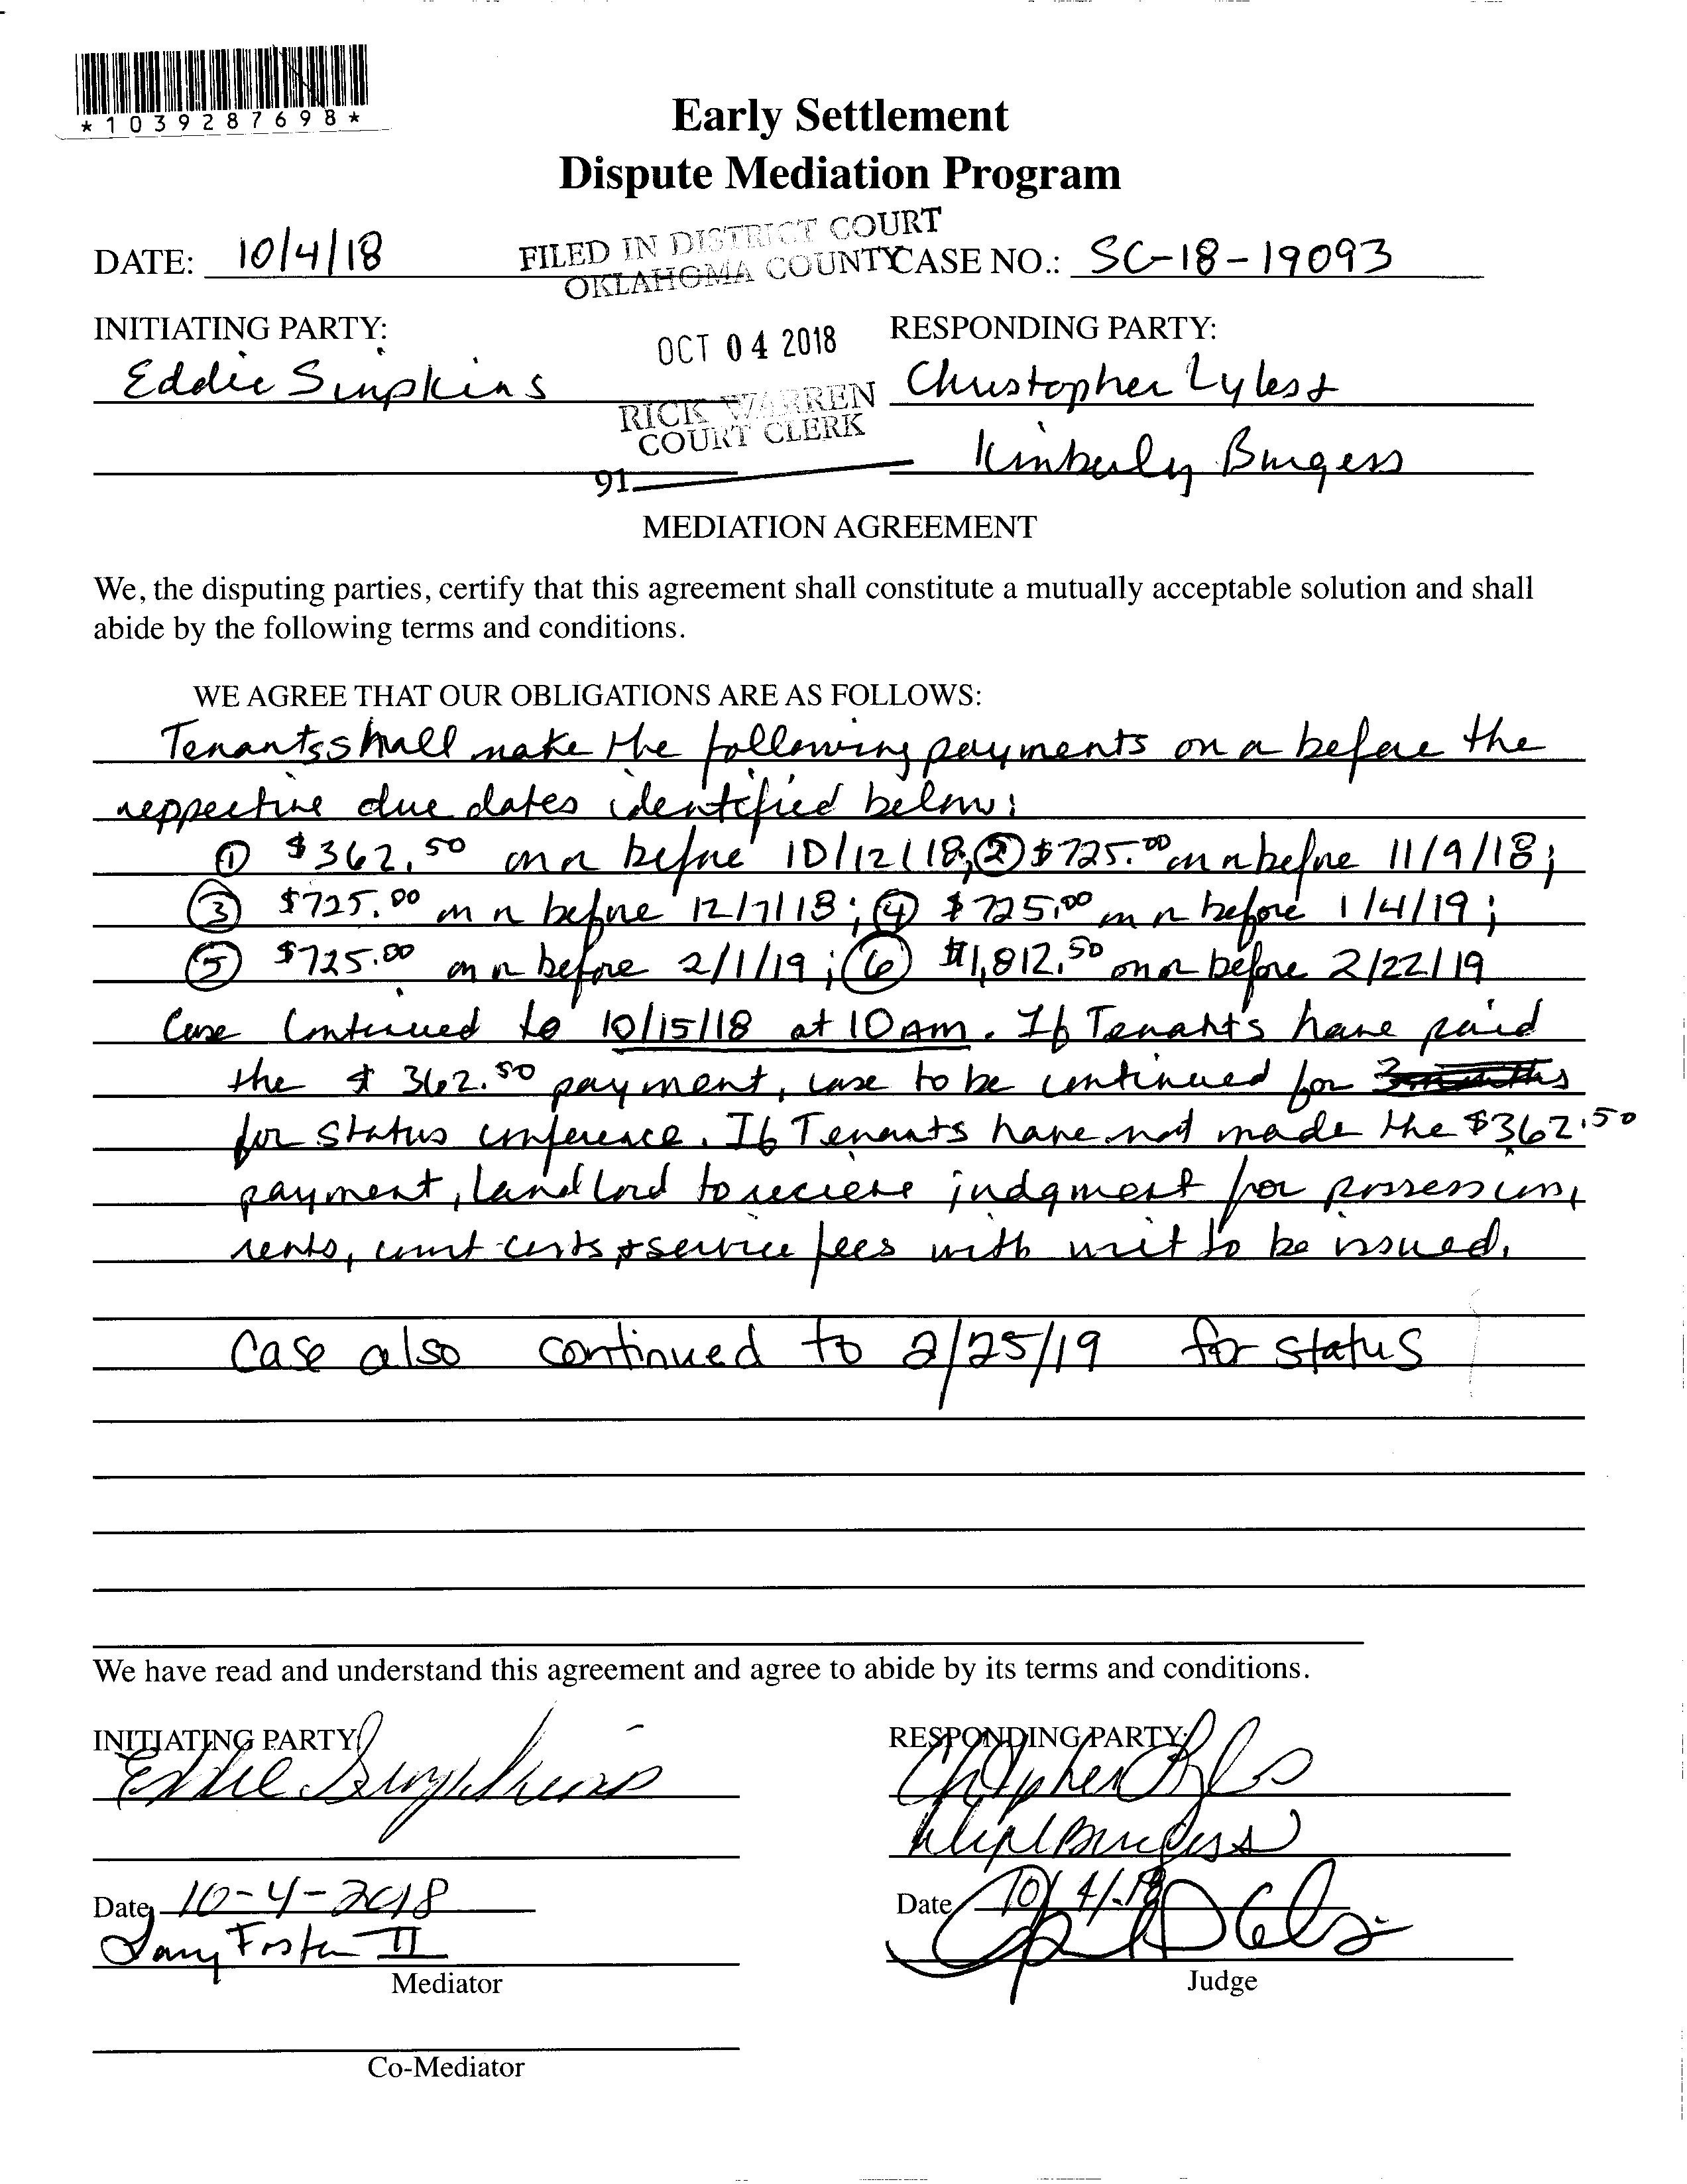 *1039287698*
Early Settlement
Dispute Mediation Program
FILED IN DISTRICT COURT
OKLAHOMA COUNTY
DATE: 10/4/18 CASE NO.: SC-18-19093
INITIATING PARTY: RESPONDING PARTY:
OCT 04 2018
Eddie Simpkins Christopher Lyles +
RICK WARREN
COURT CLERK
Kimberly Burgess
91
MEDIATION AGREEMENT
We, the disputing parties, certify that this agreement shall constitute a mutually acceptable solution and shall
abide by the following terms and conditions.
WE AGREE THAT OUR OBLIGATIONS ARE AS FOLLOWS:
Tenants shall make the following payments on or before the
reppective due dates identified below:
① $362.50 on or before 10/12/18; ② $725.00 on or before 11/9/18;
③ $725.00 on or before 12/7/18; ④ $725.00 on or before 1/4/19;
⑤ $725.00 on or before 2/1/19; ⑥ $1,812.50 on or before 2/22/19
Case continued to 10/15/18 at 10 am. If Tenants have paid
the $362.50 payment, case to be continued for 3 months
for status conference. If Tenants have not made the $362.50
payment, landlord to recieve judgment for possession,
rents, court costs + service fees with writ to be issued.
Case also continued to 2/25/19 for status
We have read and understand this agreement and agree to abide by its terms and conditions.
INITIATING PARTY: RESPONDING PARTY:
Eddie Simpkins
Date 10-4-2018 Date 10/4/18
Foster II
Mediator Judge
Co-Mediator